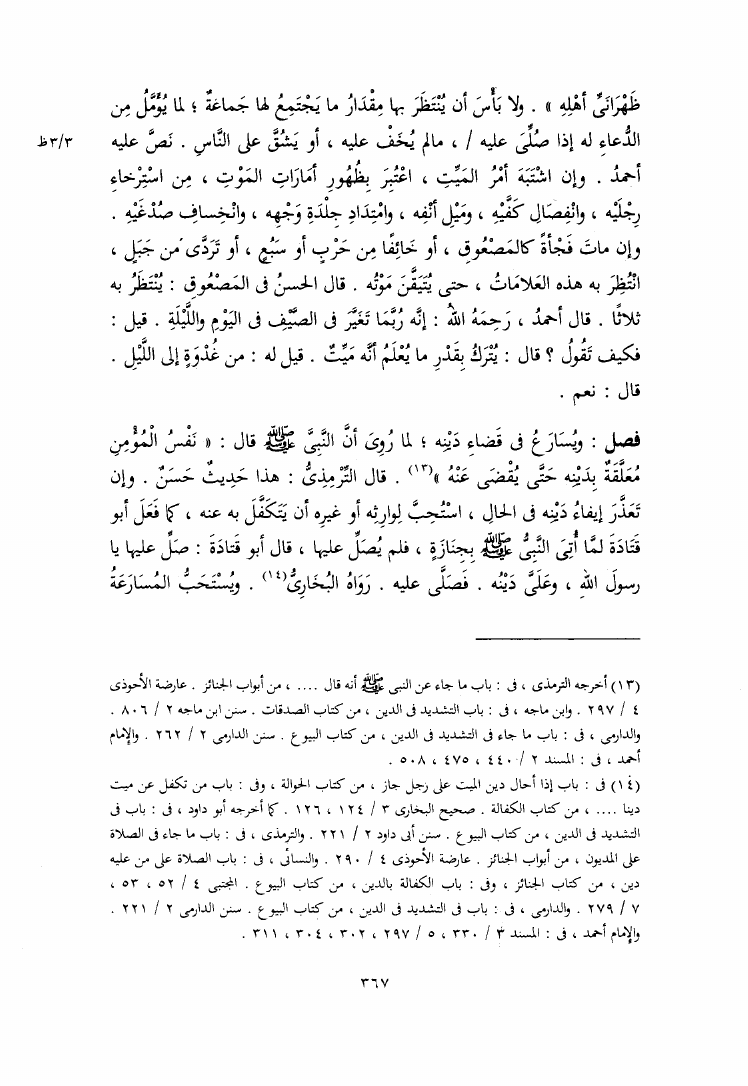 ظَهْرَانَىْ أهْلِهِ » . ولا بَأْسَ أن يُنْتَظَرَ بها مِقْدَارُ ما يَجْتَمِعُ لها جَماعةٌ ؛ لما يُؤَمَّلُ مِن
الدُّعاءِ له إذا صُلِّىَ عليه / ، مالم يُخَفْ عليه ، أو يَشُقَّ على النَّاسِ . نَصَّ عليه
٣/٣ظ
أحمدُ . وإن اشْتَبَهَ أمْرُ المَيِّتِ ، اعْتُبِرَ بِظُهُورِ أمَارَاتِ المَوْتِ ، مِن اسْتِرْخاءِ
رِجْلَيْه ، وانْفِصَالِ كَفَّيْهِ ، ومَيْلِ أنْفِه ، وامْتِدَادِ جِلْدَةِ وَجْهِه ، وانْخِسافِ صُدْغَيْهِ .
وإن ماتَ فَجْأةً كالمَصْعُوقِ ، أو خَائِفًا مِن حَرْبٍ أو سَبُعٍ ، أو تَرَدَّى من جَبَلٍ ،
انْتُظِرَ به هذه العَلاماتُ ، حتى يُتَيَقَّنَ مَوْتُه . قال الحسنُ فى المَصْعُوقِ : يُنْتَظَرُ به
ثلاثًا . قال أحمدُ ، رَحِمَهُ اللهُ : إنَّه رُبَّمَا تَغَيَّرَ فى الصَّيْفِ فى اليَوْمِ واللَّيْلَةِ . قيل :
فكيف تَقُولُ ؟ قال : يُتْرَكُ بِقَدْرِ ما يُعْلَمُ أنَّه مَيِّتٌ . قيل له : من غُدْوَةٍ إلى اللَّيْلِ .
قال : نعم .
فصل : ويُسَارَعُ فى قَضاءِ دَيْنِه ؛ لما رُوِىَ أنَّ النَّبِىَّ ﷺ قال : « نَفْسُ الْمُؤْمِنِ
مُعَلَّقَةٌ بِدَيْنِه حَتَّى يُقْضَى عَنْهُ »(١٣) . قال التِّرْمِذِىُّ : هذا حَدِيثٌ حَسَنٌ . وإن
تَعَذَّرَ إيفاءُ دَيْنِه فى الحالِ ، اسْتُحِبَّ لِوارِثِه أو غيرِه أن يَتَكَفَّلَ به عنه ، كما فَعَلَ أبو
قَتَادَةَ لمَّا أُتِىَ النَّبِىُّ ﷺ بِجِنَازَةٍ ، فلم يُصَلِّ عليها ، قال أبو قتادَةَ : صَلِّ عليها يا
رسولَ اللهِ ، وعَلَىَّ دَيْنُه . فَصَلَّى عليه . رَوَاهُ البُخَارِىُّ(١٤) . ويُسْتَحَبُّ المُسارَعَةُ
(١٣) أخرجه الترمذى ، فى : باب ما جاء عن النبى ﷺ أنه قال .... ، من أبواب الجنائز . عارضة الأحوذى
٤ / ٢٩٧ . وابن ماجه ، فى : باب التشديد فى الدين ، من كتاب الصدقات . سنن ابن ماجه ٢ / ٨٠٦ .
والدارمى ، فى : باب ما جاء فى التشديد فى الدين ، من كتاب البيوع . سنن الدارمى ٢ / ٢٦٢ . والإمام
أحمد ، فى : المسند ٢ / ٤٤٠ ، ٤٧٥ ، ٥٠٨ .
(١٤) فى : باب إذا أحال دين الميت على رجل جاز ، من كتاب الحوالة ، وفى : باب من تكفل عن ميت
دينا .... ، من كتاب الكفالة . صحيح البخارى ٣ / ١٢٤ ، ١٢٦ . كما أخرجه أبو داود ، فى : باب فى
التشديد فى الدين ، من كتاب البيوع . سنن أبى داود ٢ / ٢٢١ . والترمذى ، فى : باب ما جاء فى الصلاة
على المديون ، من أبواب الجنائز . عارضة الأحوذى ٤ / ٢٩٠ . والنسائى ، فى : باب الصلاة على من عليه
دين ، من كتاب الجنائز ، وفى : باب الكفالة بالدين ، من كتاب البيوع . المجتبى ٤ / ٥٢ ، ٥٣ ،
٧ / ٢٧٩ . والدارمى ، فى : باب فى التشديد فى الدين ، من كتاب البيوع . سنن الدارمى ٢ / ٢٢١ .
والإمام أحمد ، فى : المسند ٣ / ٣٣٠ ، ٥ / ٢٩٧ ، ٣٠٢ ، ٣٠٤ ، ٣١١ .
٣٦٧